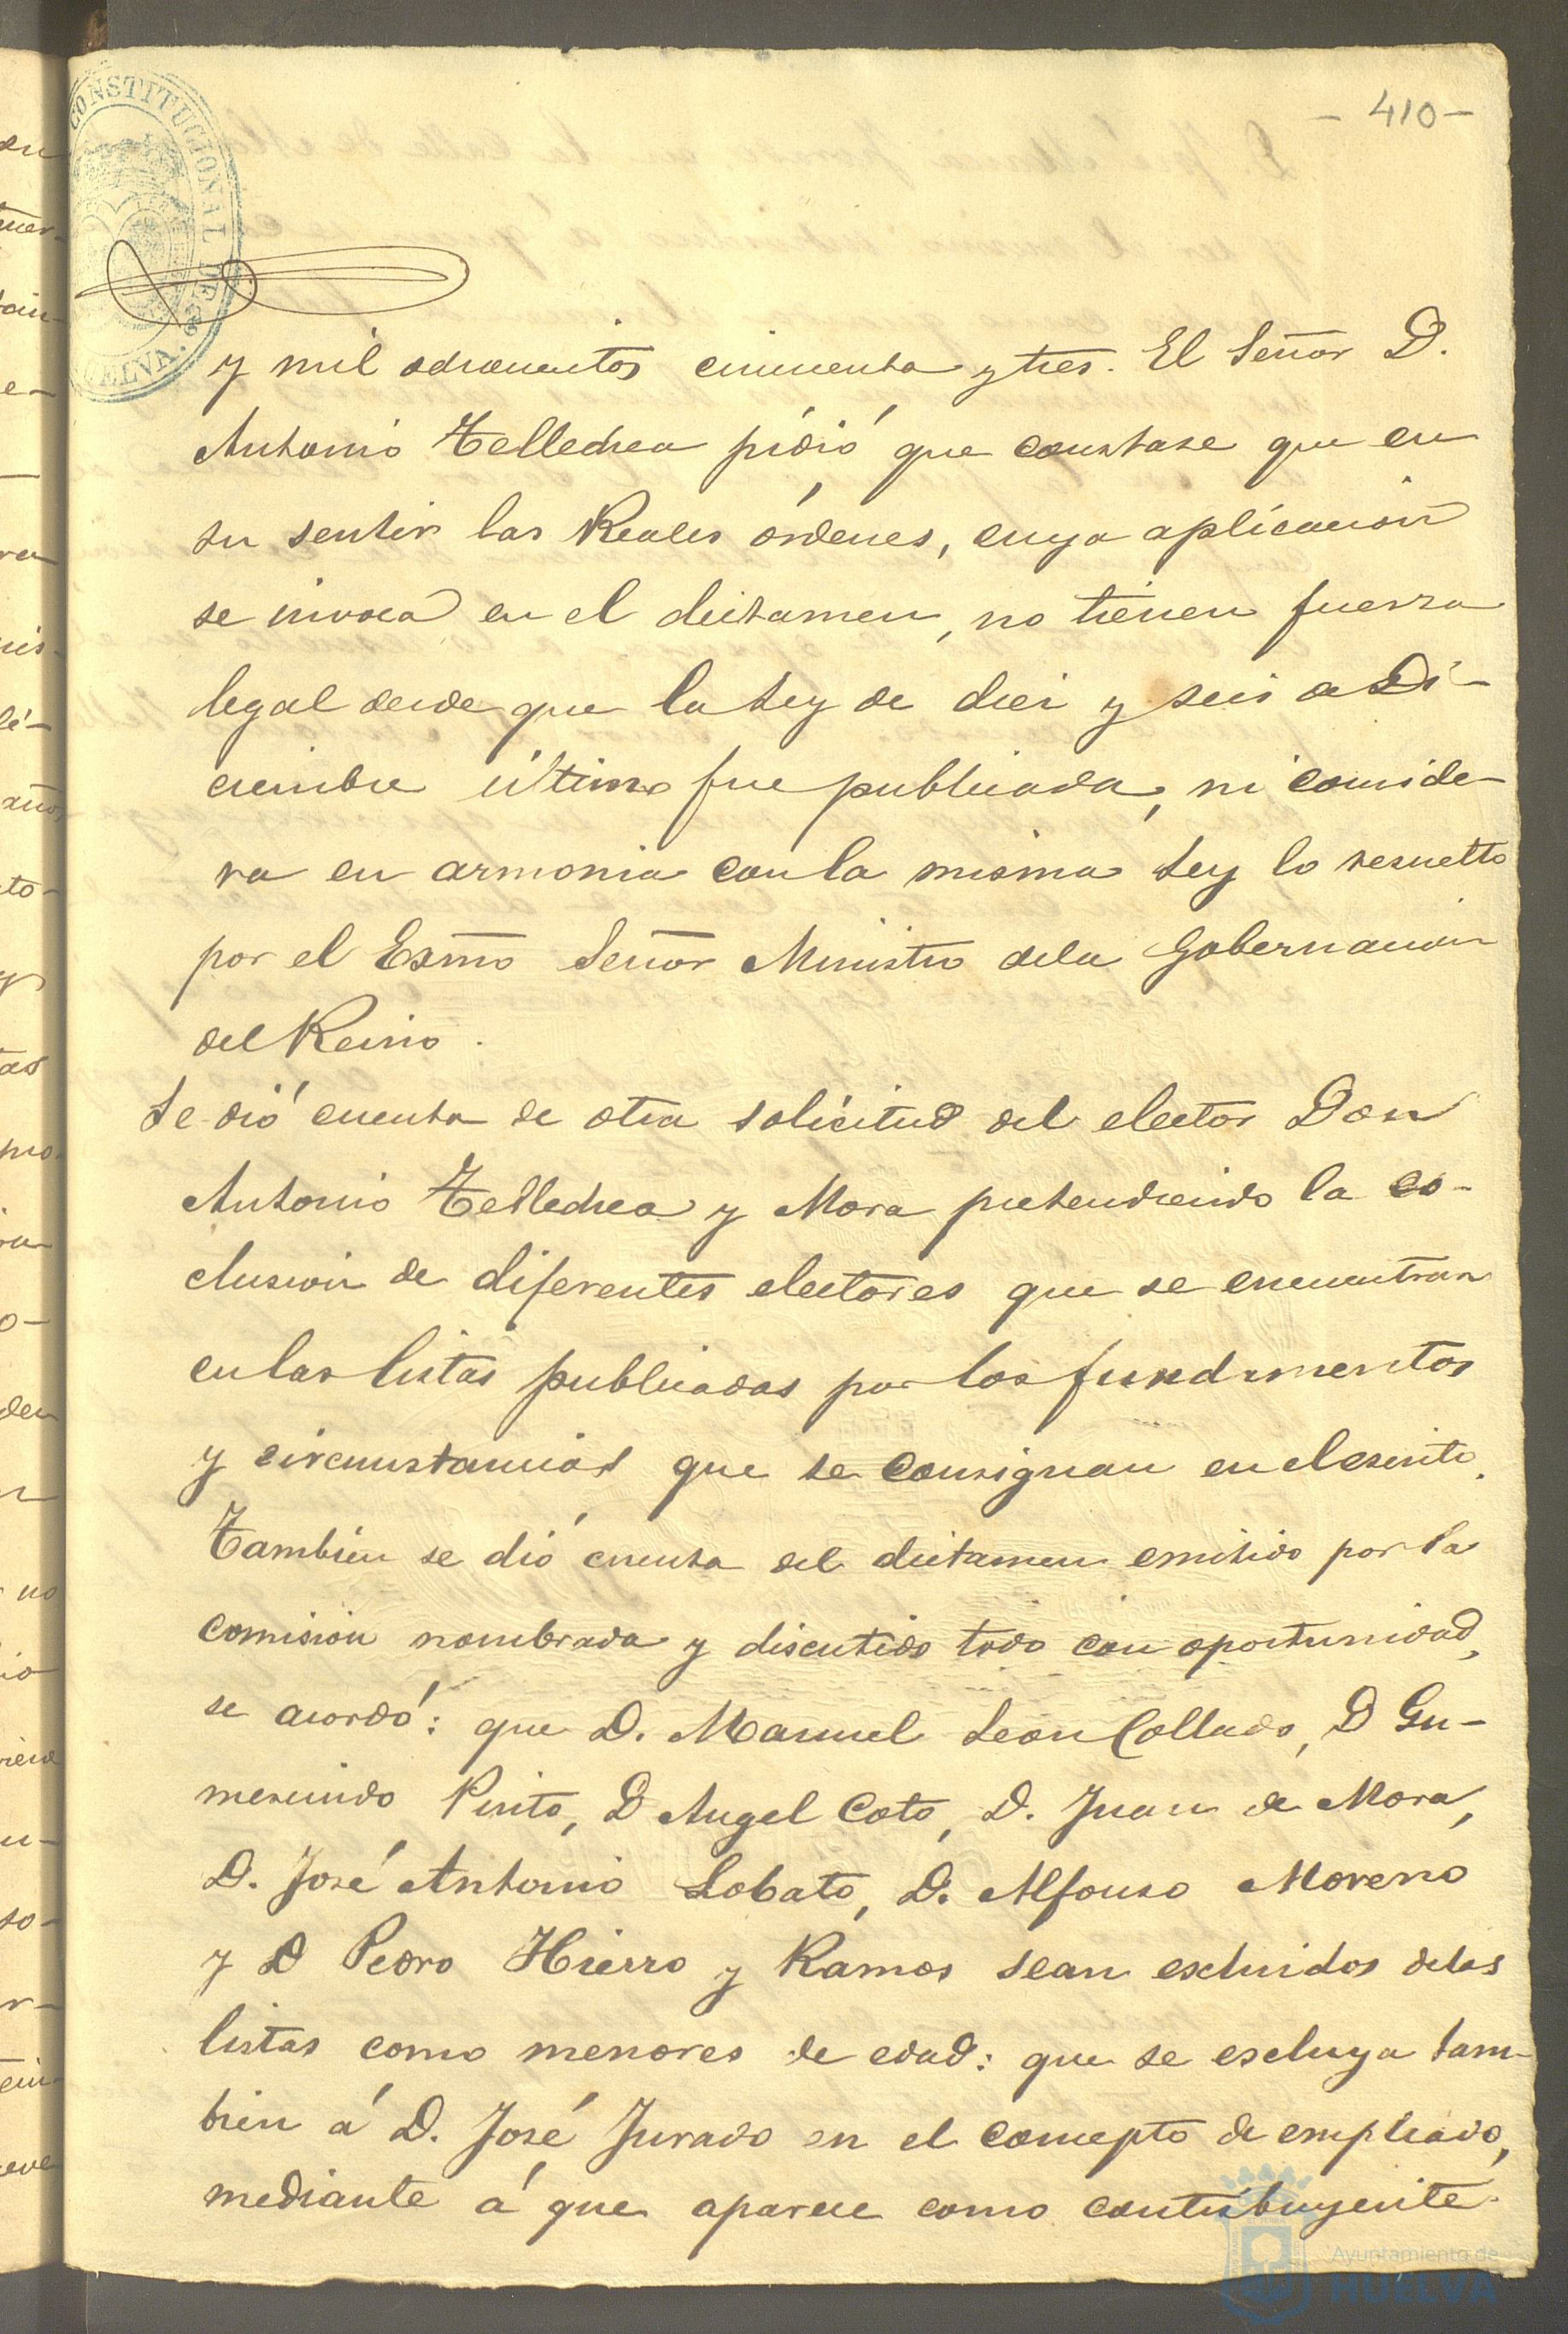 - 410 -
CONSTITUCIONAL DE
HUELVA.
y mil ochocientos cincuenta y tres. El Señor D.
Antonio Tellechea pidió que constase que en
su sentir las Reales órdenes, cuya aplicacion
se invoca en el dictamen, no tienen fuerza
legal desde que la Ley de diez y seis de Di-
ciembre último fue publicada, ni conside-
ra en armonia con la misma Ley lo resuelto
por el Esmo Señor Ministro de la Gobernacion
del Reino.
Se dió cuenta de otra solicitud del elector Don
Antonio Tellechea y Mora pretendiendo la es-
clusion de diferentes electores que se encuentran
en las listas publicadas por los fundamentos
y circunstancias que se consignan en el escrito.
Tambien se dió cuenta del dictamen emitido por la
comision nombrada y discutido todo con oportunidad,
se acordó: que D. Manuel Leon Collado, D Gu-
mersindo Pinto, D Angel Coto, D. Juan de Mora,
D. José Antonio Lobato, D. Alfonso Moreno
y D Pedro Hierro y Ramos sean escluidos de las
listas como menores de edad: que se escluya tam-
bien á D. José Jurado en el concepto de empleado,
mediante á que aparece como contribuyente.
Ayuntamiento de
HUELVA